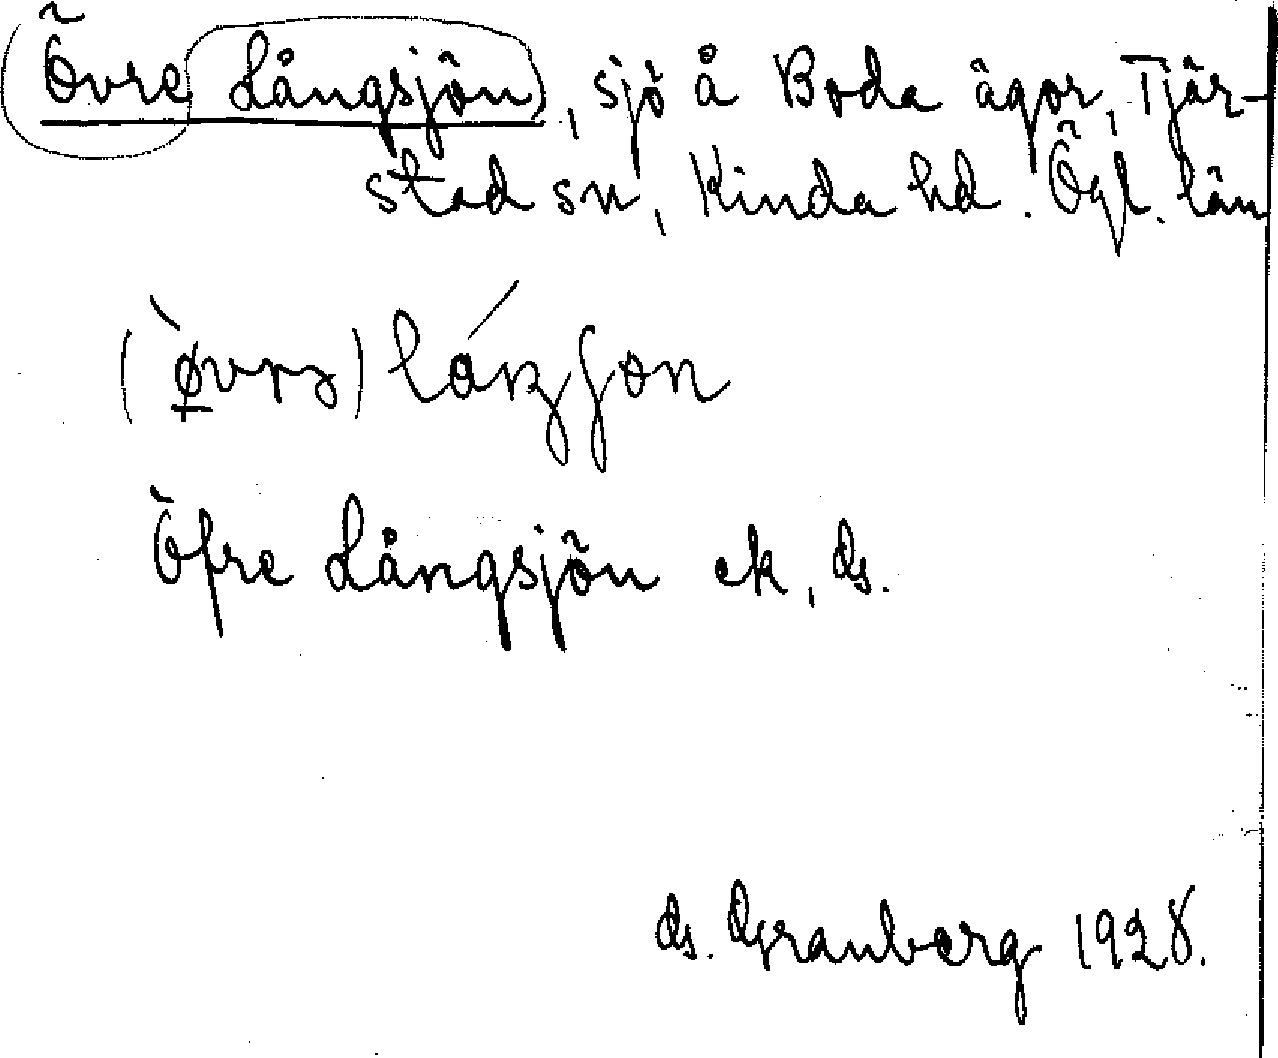 Övre Långsjön, sjö å Boda ägor, Tjär-
stad sn, Kinda hd. Ögl. län
Öfre Långsjön ek, ds.
G. Granberg 1928.